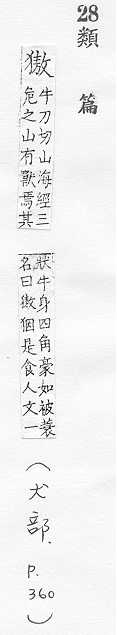 28 類篇
獓
牛刀切山海經三
危之山有獸焉其
狀牛身四角豪如被蓑
名曰獓是食人文一
(犬部. P.360)